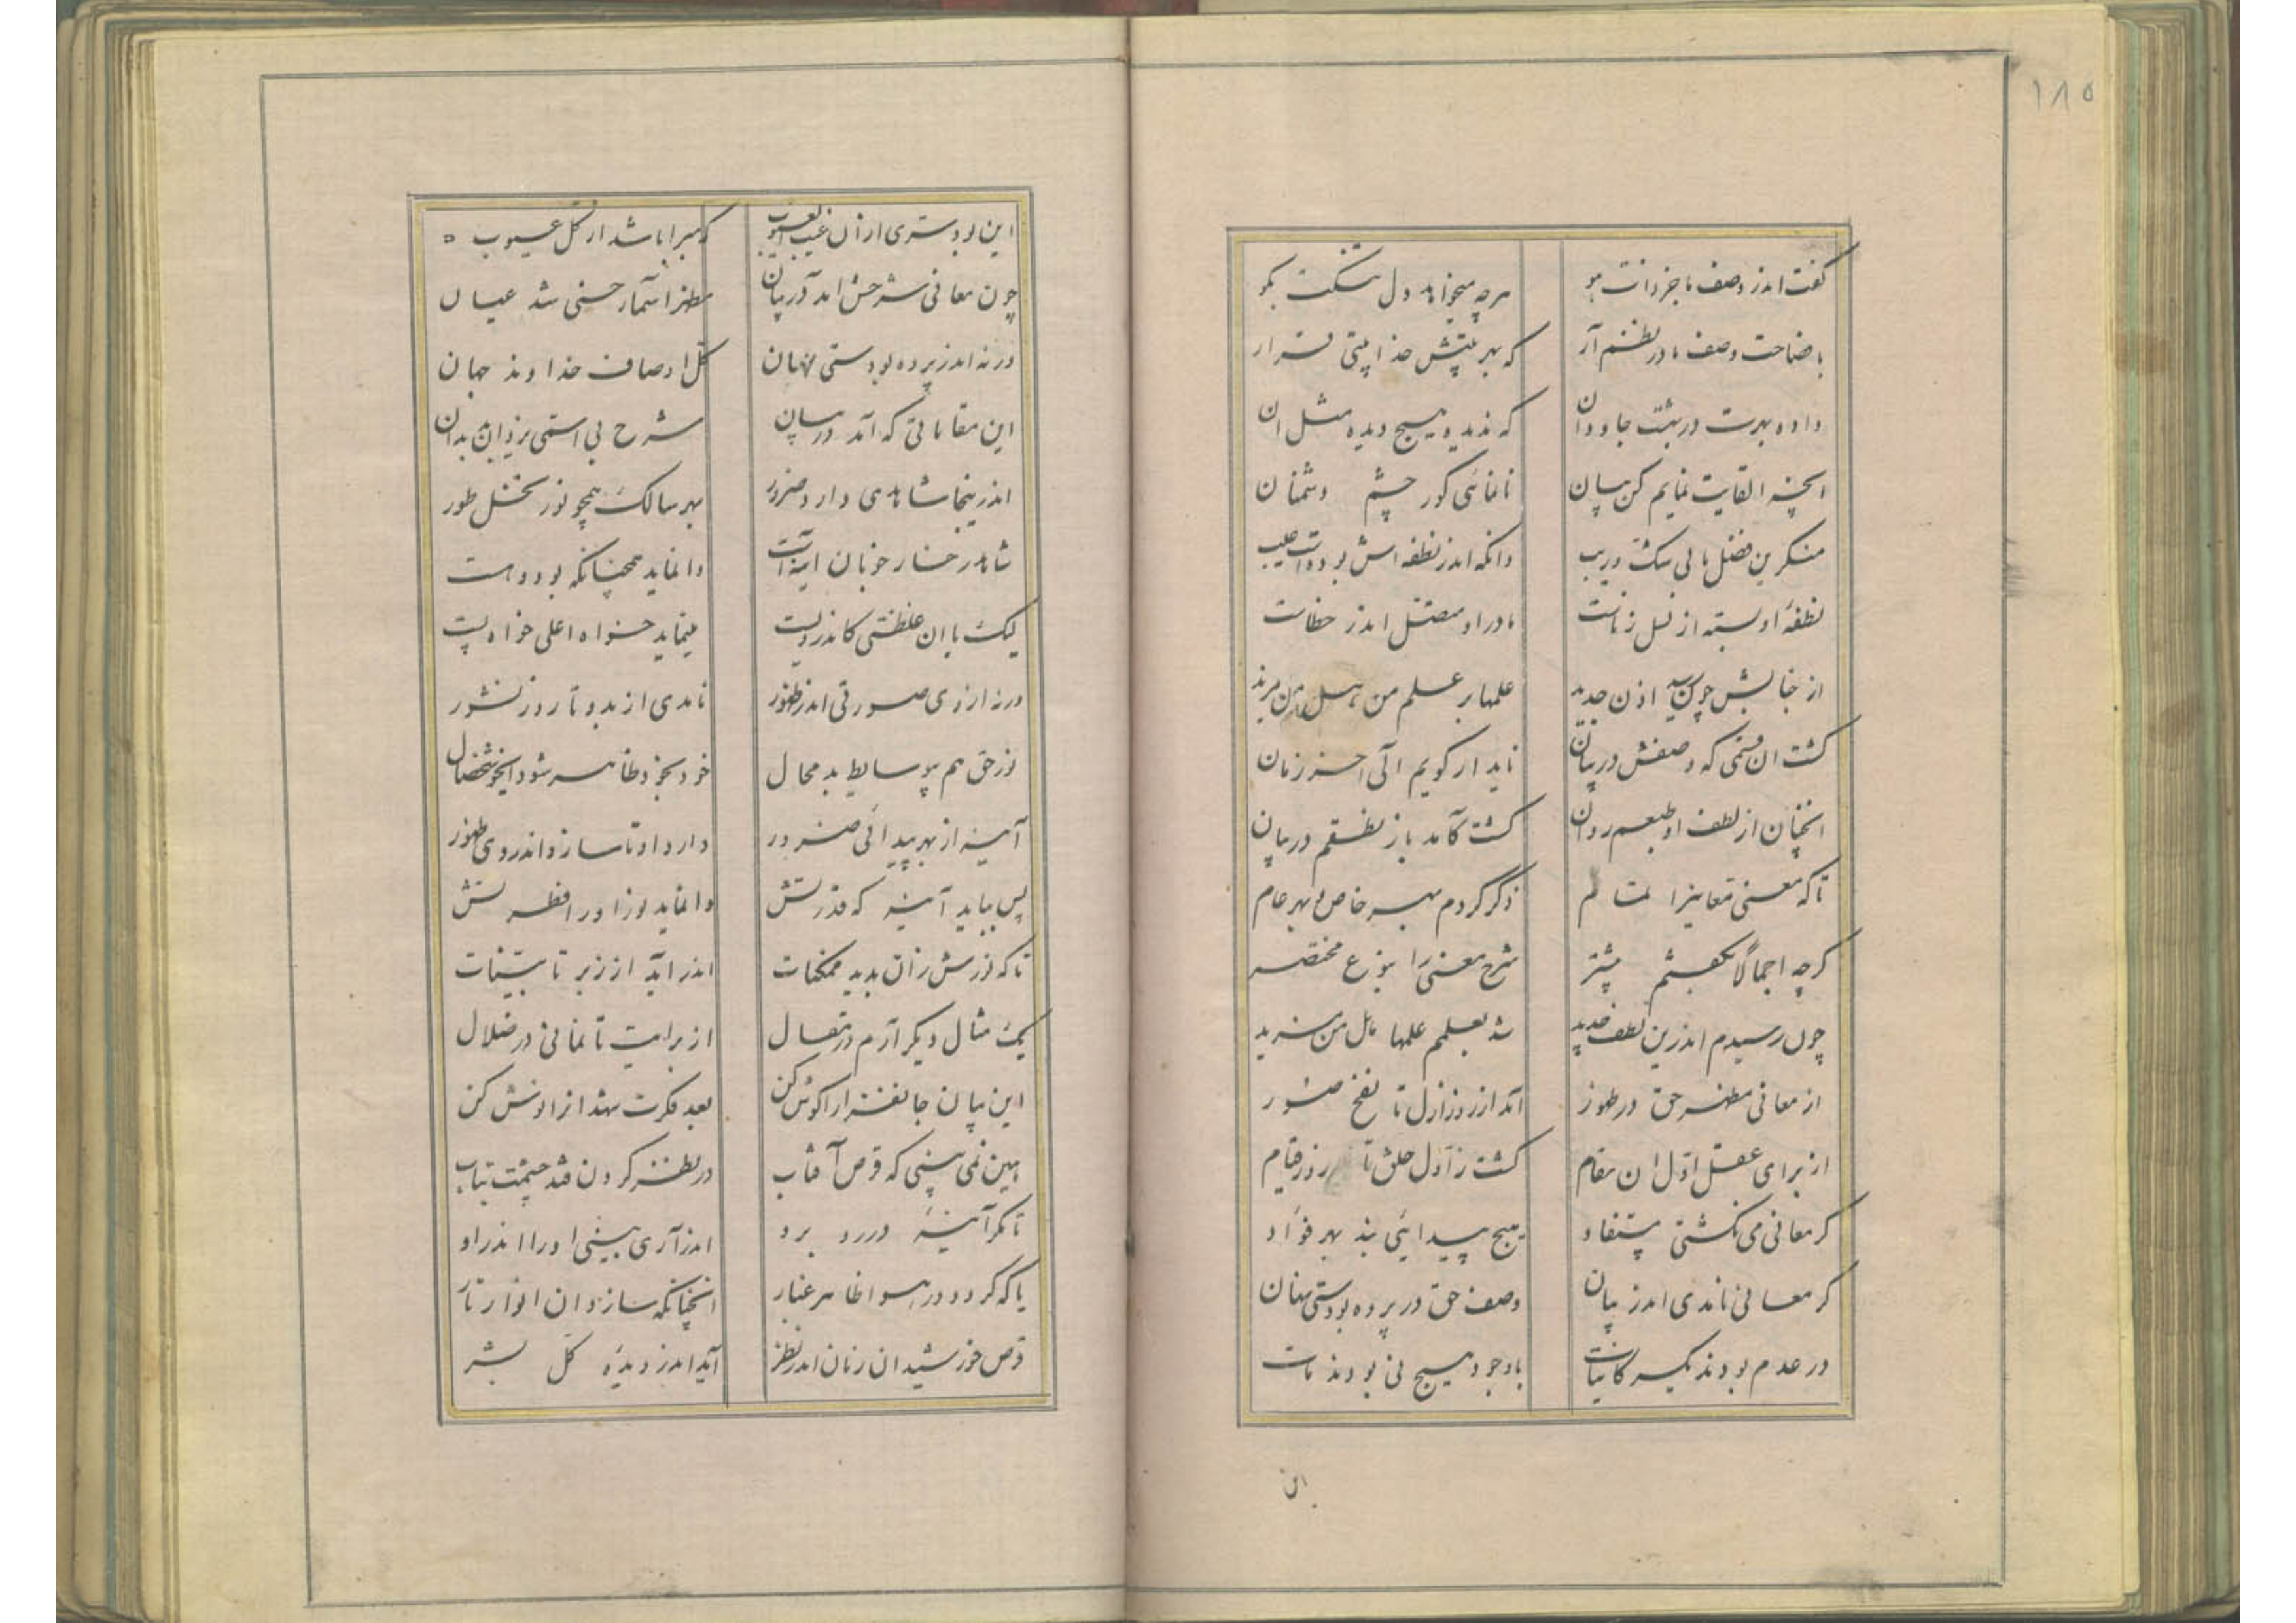 ۱۸۵
گفت اندر وصف ما جز ذات هو هرچه میخواهد دل تنگت بگو
با فصاحت وصف ما در نظم آر که بهر بیتش خدا بیتی قرار
داده بهرت در بهشت جاودان که ندیده هیچ دیده مثل ان
انچه القایت نمایم کن بیان تا نمائی کور چشم دشمنان
منکرین فضل ما بی شک و ریب وانکه اندر نطفه اش بوده است عیب
نطفهٔ او بسته از نسل زناست مادر او متصل اندر خطاست
از جنابش چون رسید اذن جدید علمها بر علم من شد من مزید
گشت ان قسمی که وصفش در بیان ناید ار گویم الی اخر زمان
انچنان از لطف او طبعم روان گشت کامد باز نطقم در بیان
تا که معنی معانیرا تمام ذکر کردم بهر خاص و بهر عام
گرچه اجمالا بگفتم پیشتر شرح معنی را بنوع مختصر
چون رسیدم اندرین لطف جدید شد بعلمم علمها بل من مزید
از معانی مظهر حق در ظهور آمد از روز ازل تا نفخ صور
از برای عقل اوّل ان مقام گشت ز اوّل خلق تا روز قیام
گر معانی می نگشتی مستفاد هیچ پیدائی نبد بهر فؤاد
گر معانی نامدی اندر بیان وصف حق در پرده بودستی نهان
در عدم بودند یکسر کاینات باوجود هیچ نی بودند مات
این
این بود ستری از ان غیب الغیوب که مبرا باشد از کل عیوب
چون معانی شرحش امد در بیان مظهر اسمآء حسنی شد عیان
ورنه اندر پرده بودستی نهان کل اوصاف خداوند جهان
این مقاماتی که آمد در بیان شرح بی استی یزدان بدان
اندرینجا شاهدی دارد ضرور بهر سالک همچو نور نخل طور
شاهد رخسار خوبان اینه است وانماید همچنانکه بود و هست
لیک با ان غلظتی کاندر ویست مینماید خواه اعلی خواه پست
ورنه از وی صورتی اندر ظهور نامدی از بدو تا روز نشور
نور حق هم بی وسایط بد محال خود بخود ظاهر شود ایخوشخصال
آینه از بهر پیدائی ضرور دارد او تا سازد اندر وی ظهور
پس بباید آینه که قدرتش وانماید نور او را فطرتش
تا که نورش زان بدید ممکنات اندر اید از زبر تا بیّنات
یک مثال دیگر آرم در مقال از برایت تا نمانی در ضلال
این بیان جانفزا را گوش کن بعد فکرت شهد از او نش کن
هین نمی بینی که قرص آفتاب در نظر کردن فتد چشمت بتاب
تا مگر آینهٔ در رو برو اندر آری بینی او را اندر او
یا که گردد در هوا ظاهر غبار انچنانکه سازد ان انوار تار
قرص خورشید ان زمان اندر نظر آید اندر دیدهٔ کلّ بشر